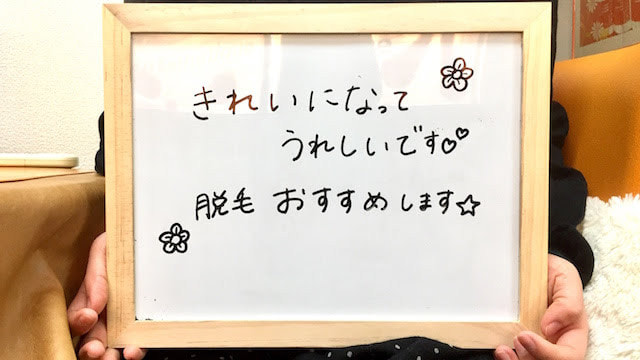 きれいになって
うれしいです♡♡
脱毛 おすすめします☆